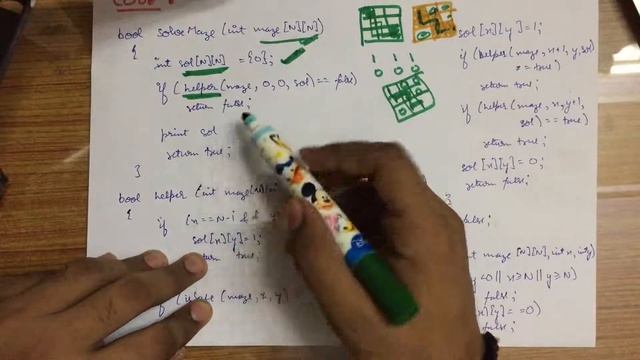 CODE
bool solveMaze (int maze[N][N])
{
int sol[N][N] = {0};
if (helper(maze, 0, 0, sol) == false)
return false;
print sol
return true;
}
bool helper (int maze[N][N]
{
if (x==N-1 &&
sol[x][y]=1;
return true;
if (isSafe (maze, x, y)
1 0 0
1 1 0
0 1 1
sol[x][y]=1;
if (helper(maze, x+1, y, sol)
== true)
return true;
if (helper (maze, x, y+1,
sol) == true)
return true;
sol[x][y]=0;
return false;
}
false;
maze[N][N], int x, int y)
y<0 || x≥N || y≥N)
false;
[y] ==0)
false;